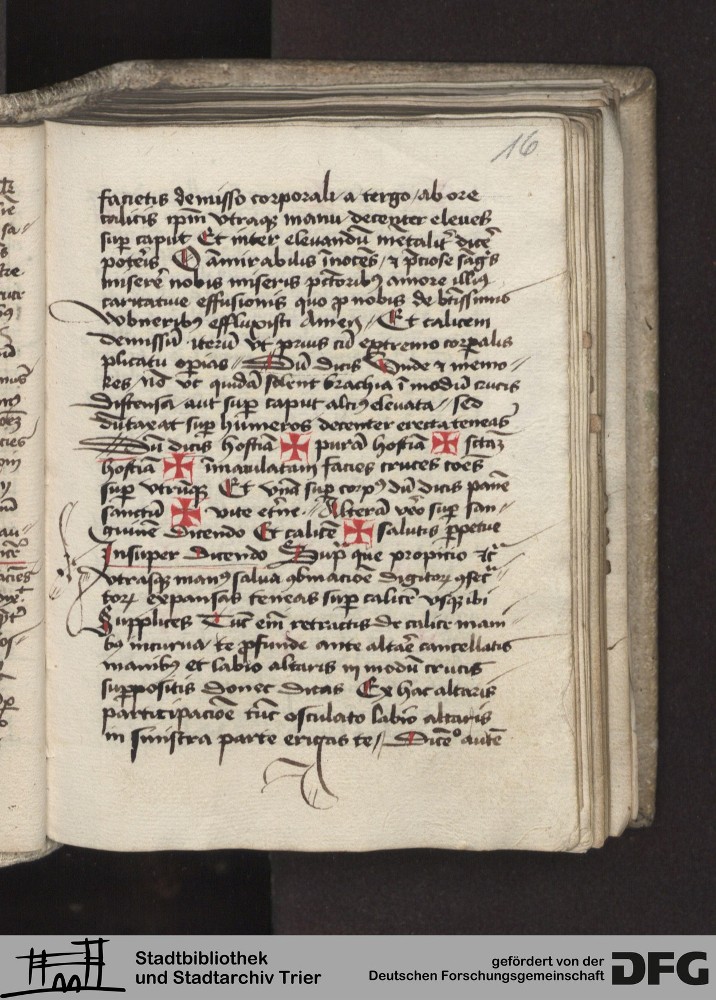 16
facietis demisso corporali a tergo / ab ore
calicis ipm̄ vtraqꝫ manu decenter eleues
sup caput Et inter eleuandū mētalit̄ dicē
poteris O āmirabilis
miserē nobis miseris pctoribꝰ amore illiꝰ
caritatiue effusionis quo ꝓ nobis de btissimis
vulneribꝰ effluxisti Amen // Et calicem
demissū iterū vt prius cū extremo corꝑalis
plicatu oꝑias // Dū dicis Vnde ⁊ memo-
res / nō vt quidā solent brachia ī modū crucis
distensa / aut sup caput alciꝰ eleuata / sed
dūtaxat sup hūmeros decenter erecta teneas
Dū dicis hostiā ✠ purā hostiā ✠ sctaꝫ
hostiā ✠ īmaculatam facies cruces
sup vtrūqꝫ Et vnā sup corpꝰ dū dicis panē
sanctū ✠ vite etne · Alterā vēo sup san-
guinē dicendo Et calicē ✠ salutis ꝑpetue
Insuper dicendo Supᷓ que propicio ⁊cᷓ
vtrasqꝫ manꝰ salua ꝯbinacōe digitorꝝ ꝯsecᷓ
torꝝ expansas teneas sup calicē vsqꝫ ibi
Supplices Tūc em̄ retractis de calice mani
bꝰ incurua te ꝓfunde ante altaē cancellatis
manibꝰ et labio altaris in modū crucis
suppositis donec dicas Ex hac altaris
participacōe tūc osculato labio altaris
in sinistra parte erigas te // Dicēᵒ autē
Stadtbibliothek
und Stadtarchiv Trier
gefördert von der
Deutschen Forschungsgemeinschaft
DFG